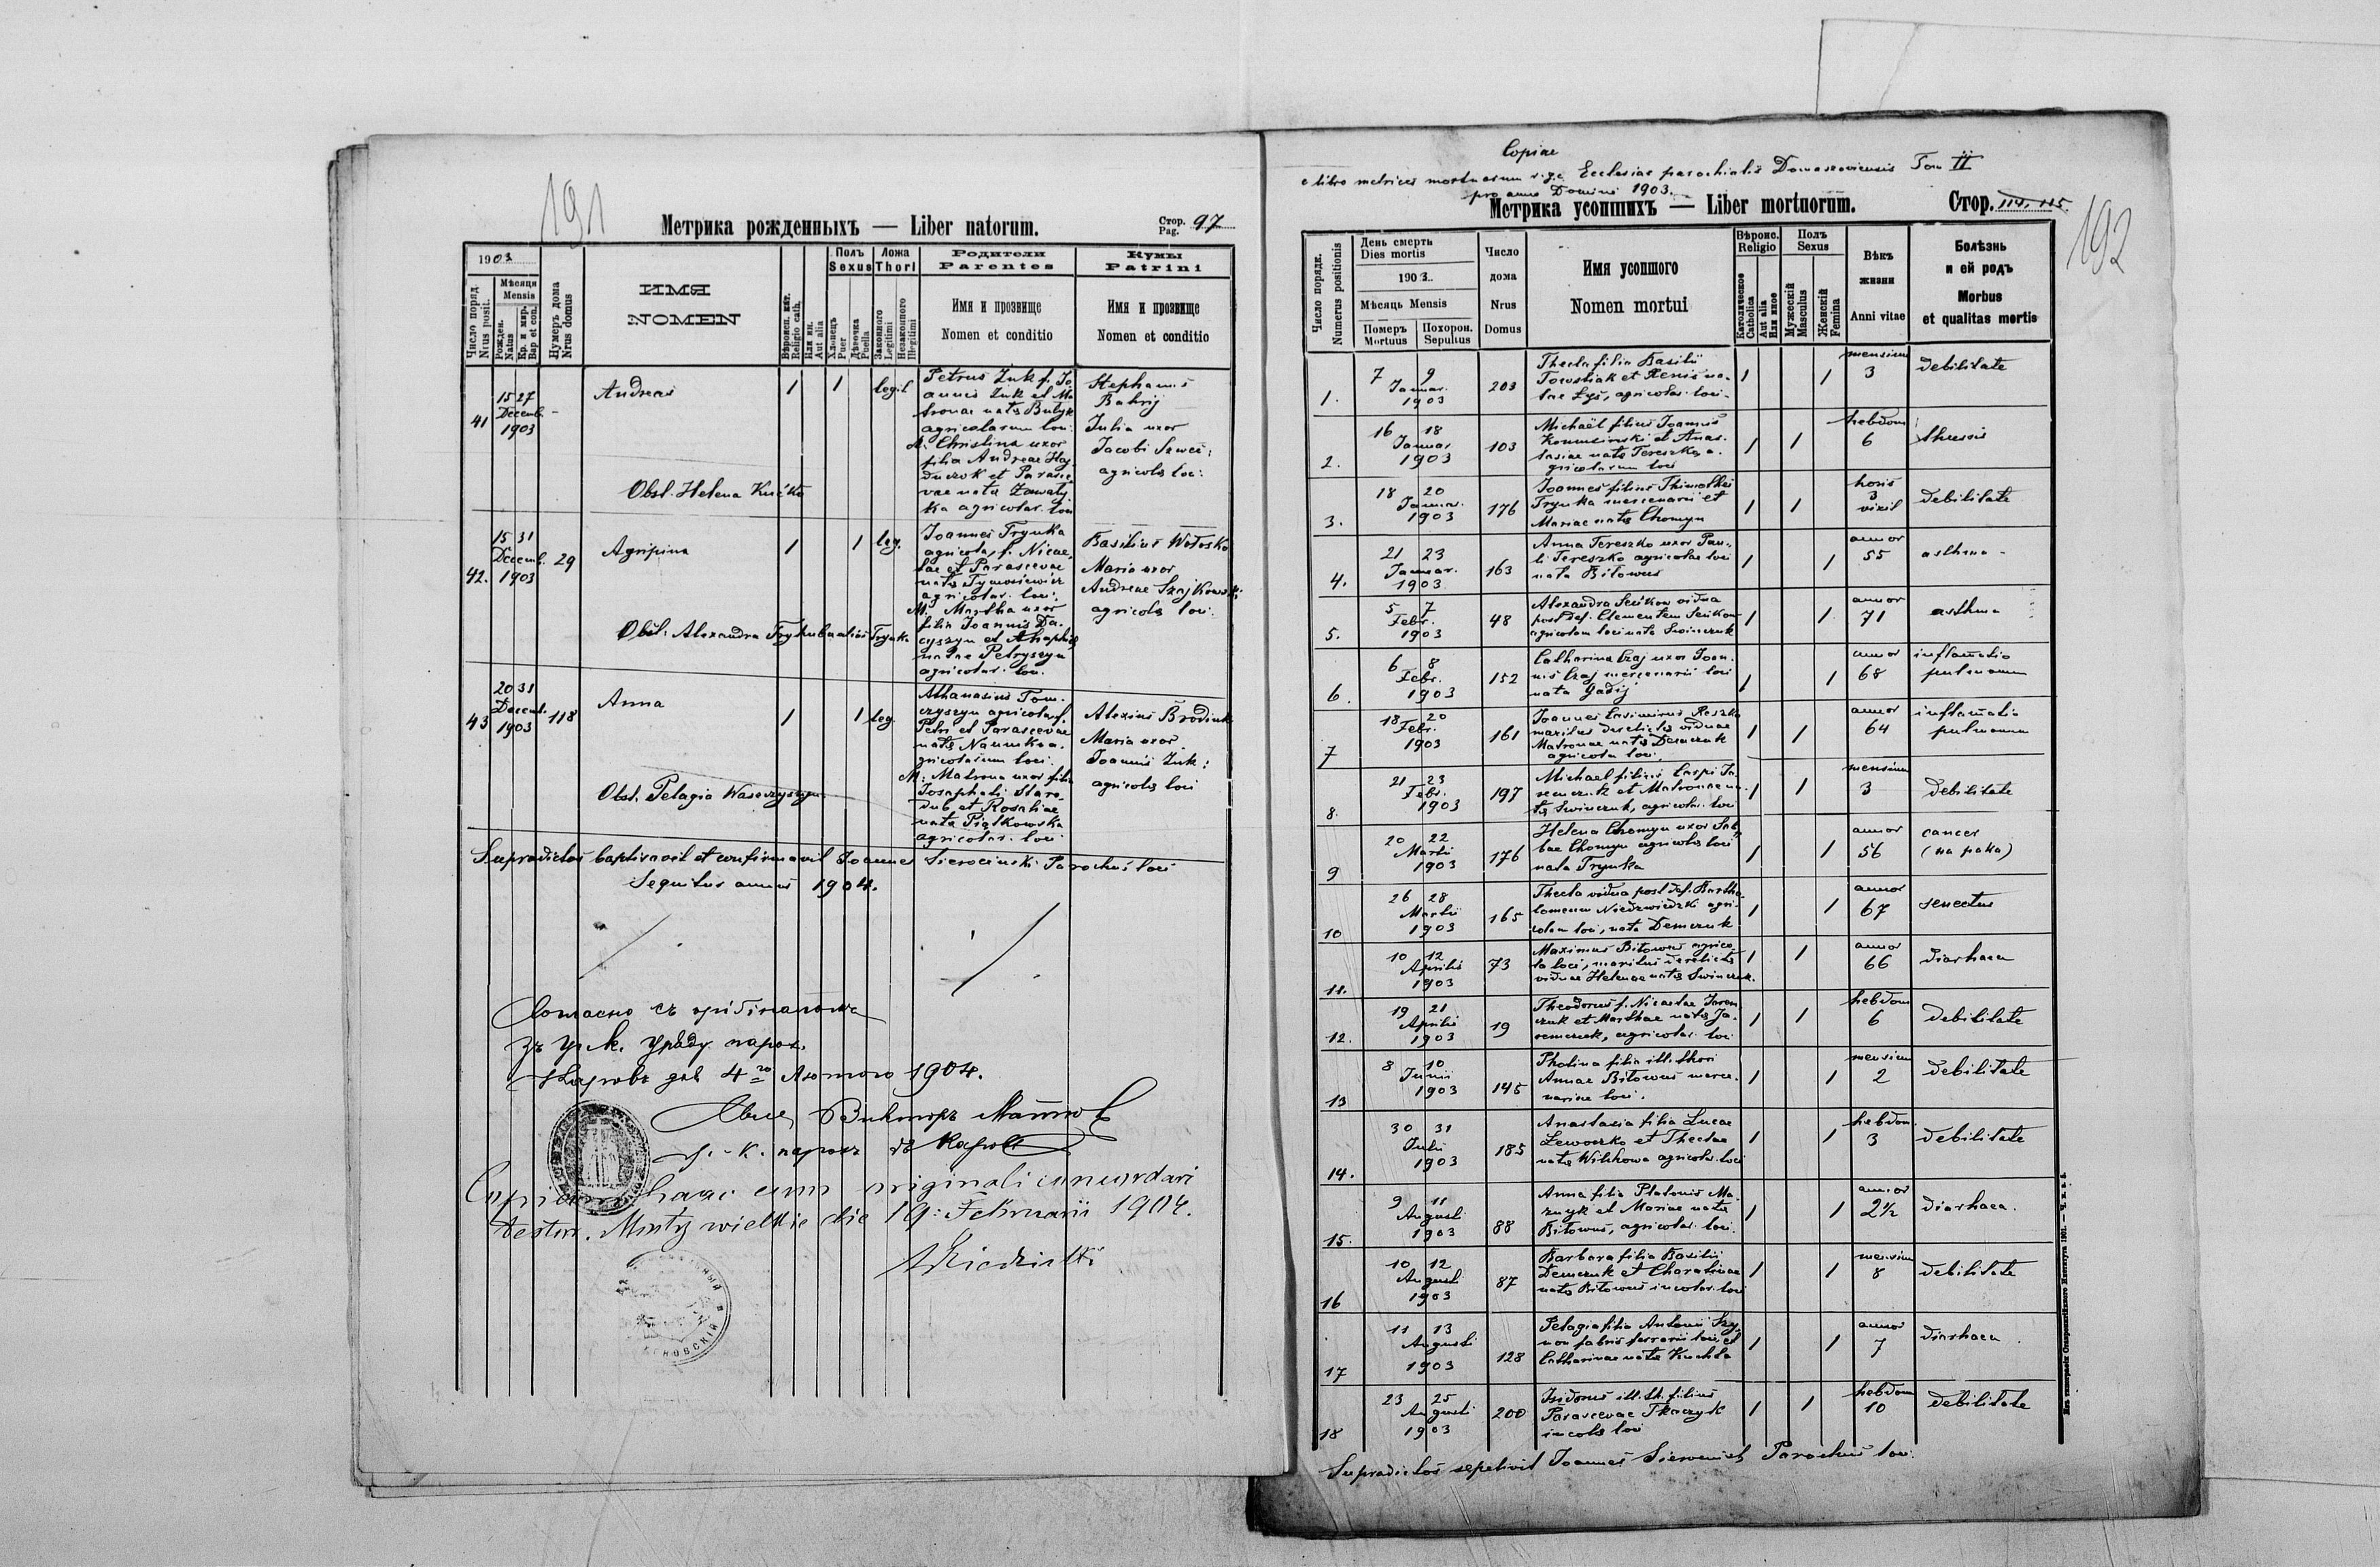 191
Метрика рожденныхъ — Liber natorum.
Стор. Pag. 97
1903
Число поряд. Nrus posit.
Мѣсяця Mensis
Рожден. Natus
Кр. и мѵр. Bap et con.
Нумеръ дома Nrus domus
ИМЯ
NOMEN
Вѣроисп. кат. Religio cath.
Или ин. Aut alia
Полъ Sexus
Хлопецъ Puer
Дѣвочка Puella
Ложа Thori
Законного Legitimi
Незаконного Illegitimi
Родители Parentes
Имя и прозвище
Nomen et conditio
Кумы Patrini
Имя и прозвище
Nomen et conditio
41
15 27
Decemb.
1903
Andreas
1 1 legit
Petrus Zuk f. Jo
annis Zuk et Ma
tronae nata Butyk
agricolarum loci
M. Christina uxor
filia Andreae Haj
duczok et Parasce
vae nata Zawaty
ka agricolar. loci
Stephanus
Bahrij
Julia uxor
Jacobi Szwec;
agricola loc:
Obst. Helena Kućko
42.
15 31
Decemb.
1903
29
Agripina
1 1 leg.
Joannes Trynka
agricola, f. Nicae,
lae et Parascevae
nata Tymosiewicz
agricolar. loci.
M. Martha uxor
filia Joannis Da.
cyszyn et Ahaphiae
natae Petryszyn
agricolar. loci.
Basilius Wołosko
Maria uxor
Andreae Szajkowski
agricola loci:
Obst. Alexandra Trynka
43
20 31
Decemb.
1903
118
Anna
1 1 leg.
Athanasius Tom-
czyszyn agricola f.
Petri et Parascevae
nata Naumk a.
gricolarum loci.
M: Matrona uxor filia
Josaphati Staro,
dub et Rosaliae
nata Piątkowska
agricolar. loci
Alexius Brodiuk
Maria uxor
Joannis Zuk:
agricola loci
Obst. Pelagia Wasoczyszyn
Supradictos baptisavit et confirmavit Joannes Sierocinski Parochus loci
Sequitur annus 1904.
Согласно съ оригиналомъ
Зъ гр. к. Уряду парох.
Карових дня 4го Лютого 1904.
Викторъ
гр.-к. парохъ въ Каров
Copiam hanc cum originali concordari
testor. Mosty wielkie die 19: Februarii 1904.
Copiae
e libro metrices mortuorum r. g. c. Ecclesiae parochialis Domaszoviensis Tom II
pro anno Domini 1903.
Метрика усопшихъ — Liber mortuorum.
Стор. 114. 115.
192
Число порядк. Numerus positionis
День смерть
Dies mortis
1903.
Мѣсяць Mensis
Померъ Mortuus
Похорон. Sepultus
Число
дома
Nrus
Domus
Имя усопшого
Nomen mortui
Вѣроис. Religio
Католическое Catholica
Aut alia Или иное
Полъ Sexus
Мужескій Masculus
Женскій Femina
Вѣкъ
жизни
Anni vitae
Болѣзнь
и ей родъ
Morbus
et qualitas mortis
1.
7 9
Januar.
1903
203
Thecla filia Basilii
Towstiak et Xeniae na-
tae Łyś, agricolar. loci.
1 1
mensium
3
debilitate
2.
16 18
Januar
1903
103
Michaël filius Joannis
et Anas.
tasiae nata Tereszko, a.
gricolarum loci
1 1
hebdom
6
3.
18 20
Januar.
1903
176
Joannes filius Thimothei
Trynka mercenarii et
Mariae nata Chomyn
1 1
horis
3
vixit
debilitate
4.
21 23
Januar.
1903
163
Anna Tereszko uxor Pau-
li Tereszko agricolae loci
nata Bitowus
1 1
annor
55
asthma -
5.
5 7
Febr.
1903
48
Alexandra Seńkow vidua
post def. Clementem Seńkow
agricolam loci nata Swinczuk
1 1
annor
71
asthma
6.
6 8
Febr.
1903
152
Catharina Czaj uxor Joan.
nis Czaj mercenarii loci
nata Gadij
1 1
annor
68
inflamatio
pulmonum
7
18 20
Febr.
1903
161
Joannes Casimirus Reszko
maritus derelictae viduae
Matronae nata Demczuk
agricola loci.
1 1
annor
64
inflamatio
pulmonum
8.
21 23
Febr.
1903
197
Michael filius Caspi Ja
remczuk et Matronae na
ta Swinczuk, agricolar. loci
1 1
mensium
3
debilitate
9
20 22
Martii
1903
176
Helena Chomyn uxor Sab,
bae Chomyn agricola loci
nata Trynka
1 1
annor
56
cancer
(на рака)
10
26 28
Martii
1903
165
Thecla vidua post def. Bartho
lomeum Niedzwiedzki agri-
colam loci, nata Demczuk
1 1
annor
67
senectus
11.
10 12
Aprilis
1903
73
Maximus Bitowus agrico
la loci, maritus derelicta
viduae Helenae nata Swinczuk.
1 1
annor
66
diarhaea
12.
19 21
Aprilis
1903
19
Theodorus f. Nicaelae Jarem
czuk et Marthae nata Ja.
remczuk, agricolar. loci
1 1
hebdom
6
debilitate
13
8 10
Junii
1903
145
Photina filia ill. thori
Annae Bitowus merce.
nariae loci.
1 1
mensium
2
debilitate
14.
30 31
Julii
1903
185
Anastasia filia Lucae
Lewoczko et Theclae
nata Wilkhowa agricolar. loci
1 1
hebdom.
3
debilitate
15.
9 11
Augusti
1903
88
Anna filia Platonis Ma.
zuryk et Mariae nata
Bitowus, agricolar. loci.
1 1
annor
2½
diarhaea.
16
10 12
Augusti
1903
87
Barbara filia Basilii
Demczuk et Charatinae
nata Bitowus incolar. loci
1 1
mensium
8
debilitate
17
11 13
Augusti
1903
128
Pelagia filia Antonii Szy,
non fabris ferrarii loci, et
Catharinae nata Kuchta
1 1
annor
7
diarhaea.
18
23 25
Augusti
1903
200
Isidorus ill. th. filius
Parascevae Tkaczyk
incola loci
1 1
hebdom
10
debilitate
Supradictos sepelivit Joannes Parochus loci.
Изъ типографіи Ставропигійского Института 1901.